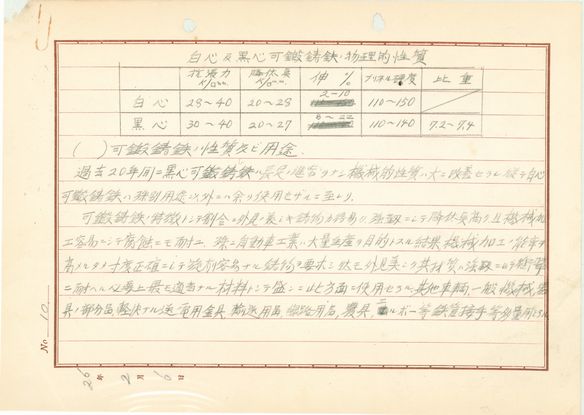 白心及黒心可鍛鋳鉄ノ物理的性質
抗張力 降伏点 伸 % ブリネル硬度 比重
白心 28〜40 20〜28 2-10 110〜150
黒心 30〜40 20〜27 8〜22 110〜140 7.2〜7.4
( ) 可鍛鋳鉄ノ性質及ビ用途
過去20年間ニ黒心可鍛鋳鉄ハ長足ノ進歩ヲナシ機械的性質ハ大ニ改善セラレ 白心
可鍛鋳鉄ハ特別用途ノ以外ニハ余リ使用セザルニ至レリ.
可鍛鋳鉄ノ特徴トシテ割合ニ外見ノ美シキ鋳物ガ得ラレ 強靱ニシテ降伏点高ク且機械加
工容易ニシテ腐蝕ニモ耐エ 殊ニ自動車工業ノ大量生産ヲ目的トスル結果機械加工ノ能率ヲ
高メルタメ寸度正確ニシテ 容易ナル鋳物ヲ要求シ然モ外見美シク其材質ハ強靱ニシテ衝撃
ニ耐ヘル必要上最モ適当ナル材料トシテ盛ニ此方面ニ使用セラル 其他車輌, 一般機械, 器
具ノ部分品 軽快ナル送電用金具 輸送用品 農具, エルボー等鉄管接手等多量用ヒラル
No 10
26年 2月 6日